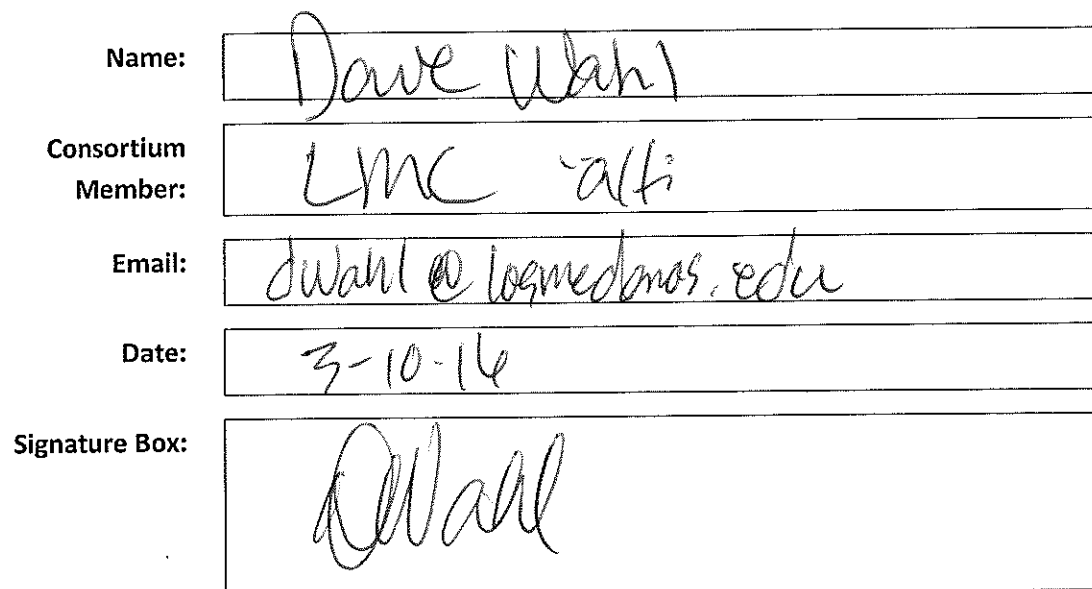 Name: Dave Wahl
Consortium
Member: LMC -alti
Email: dwahl@losmedanos.edu
Date: 3-10-16
Signature Box: DWahl